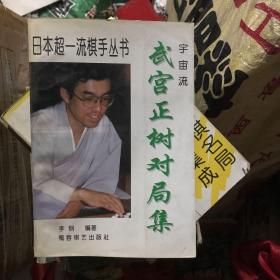 日本超一流棋手丛书
宇宙流
武宫正树对局集
李钢 编著
蜀蓉棋艺出版社
名局
集成